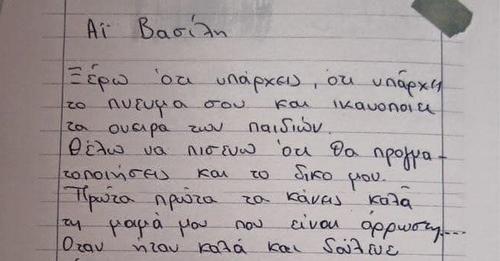 Αϊ Βασίλη
Ξέρω ότι υπάρχεις, ότι υπάρχει
το πνευμα σου και ικανοποιει
τα ονειρα των παιδιών.
Θέλω να πιστευω ότι θα πραγμα-
τοποιήσεις και το δικο μου.
Πρώτα πρώτα να κάνεις καλά
τη μαμά μου που είναι άρρωστη....
Οταν ήταν καλά και δούλευε